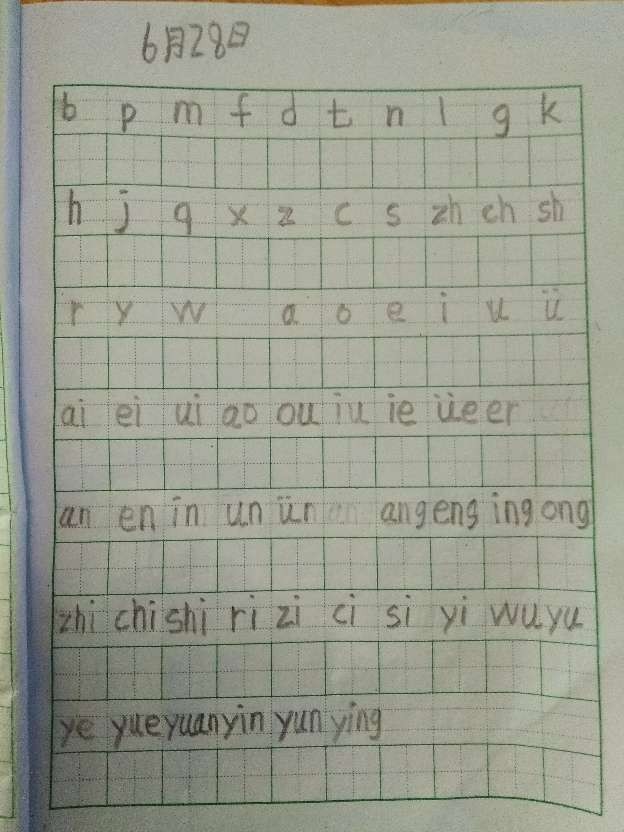 6月28日
b p m f d t n l g k
h j q x z c s zh ch sh
r y w a o e i u ü
ai ei ui ao ou iu ie üe er
an en in un ün ang eng ing ong
zhi chi shi ri zi ci si yi wu yu
ye yue yuan yin yun ying